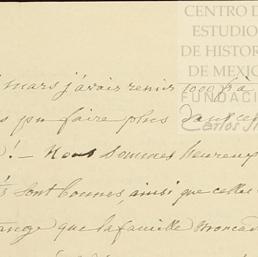 CENTRO D
ESTUDIO
DE HISTOR
DE MEXIC
FUNDACI
Carlos Sl
mars j'avais remis 1000 f à
pu faire plus dans
! - Nous sommes heureux
sont bonnes, ainsi que celles
ange que la famille